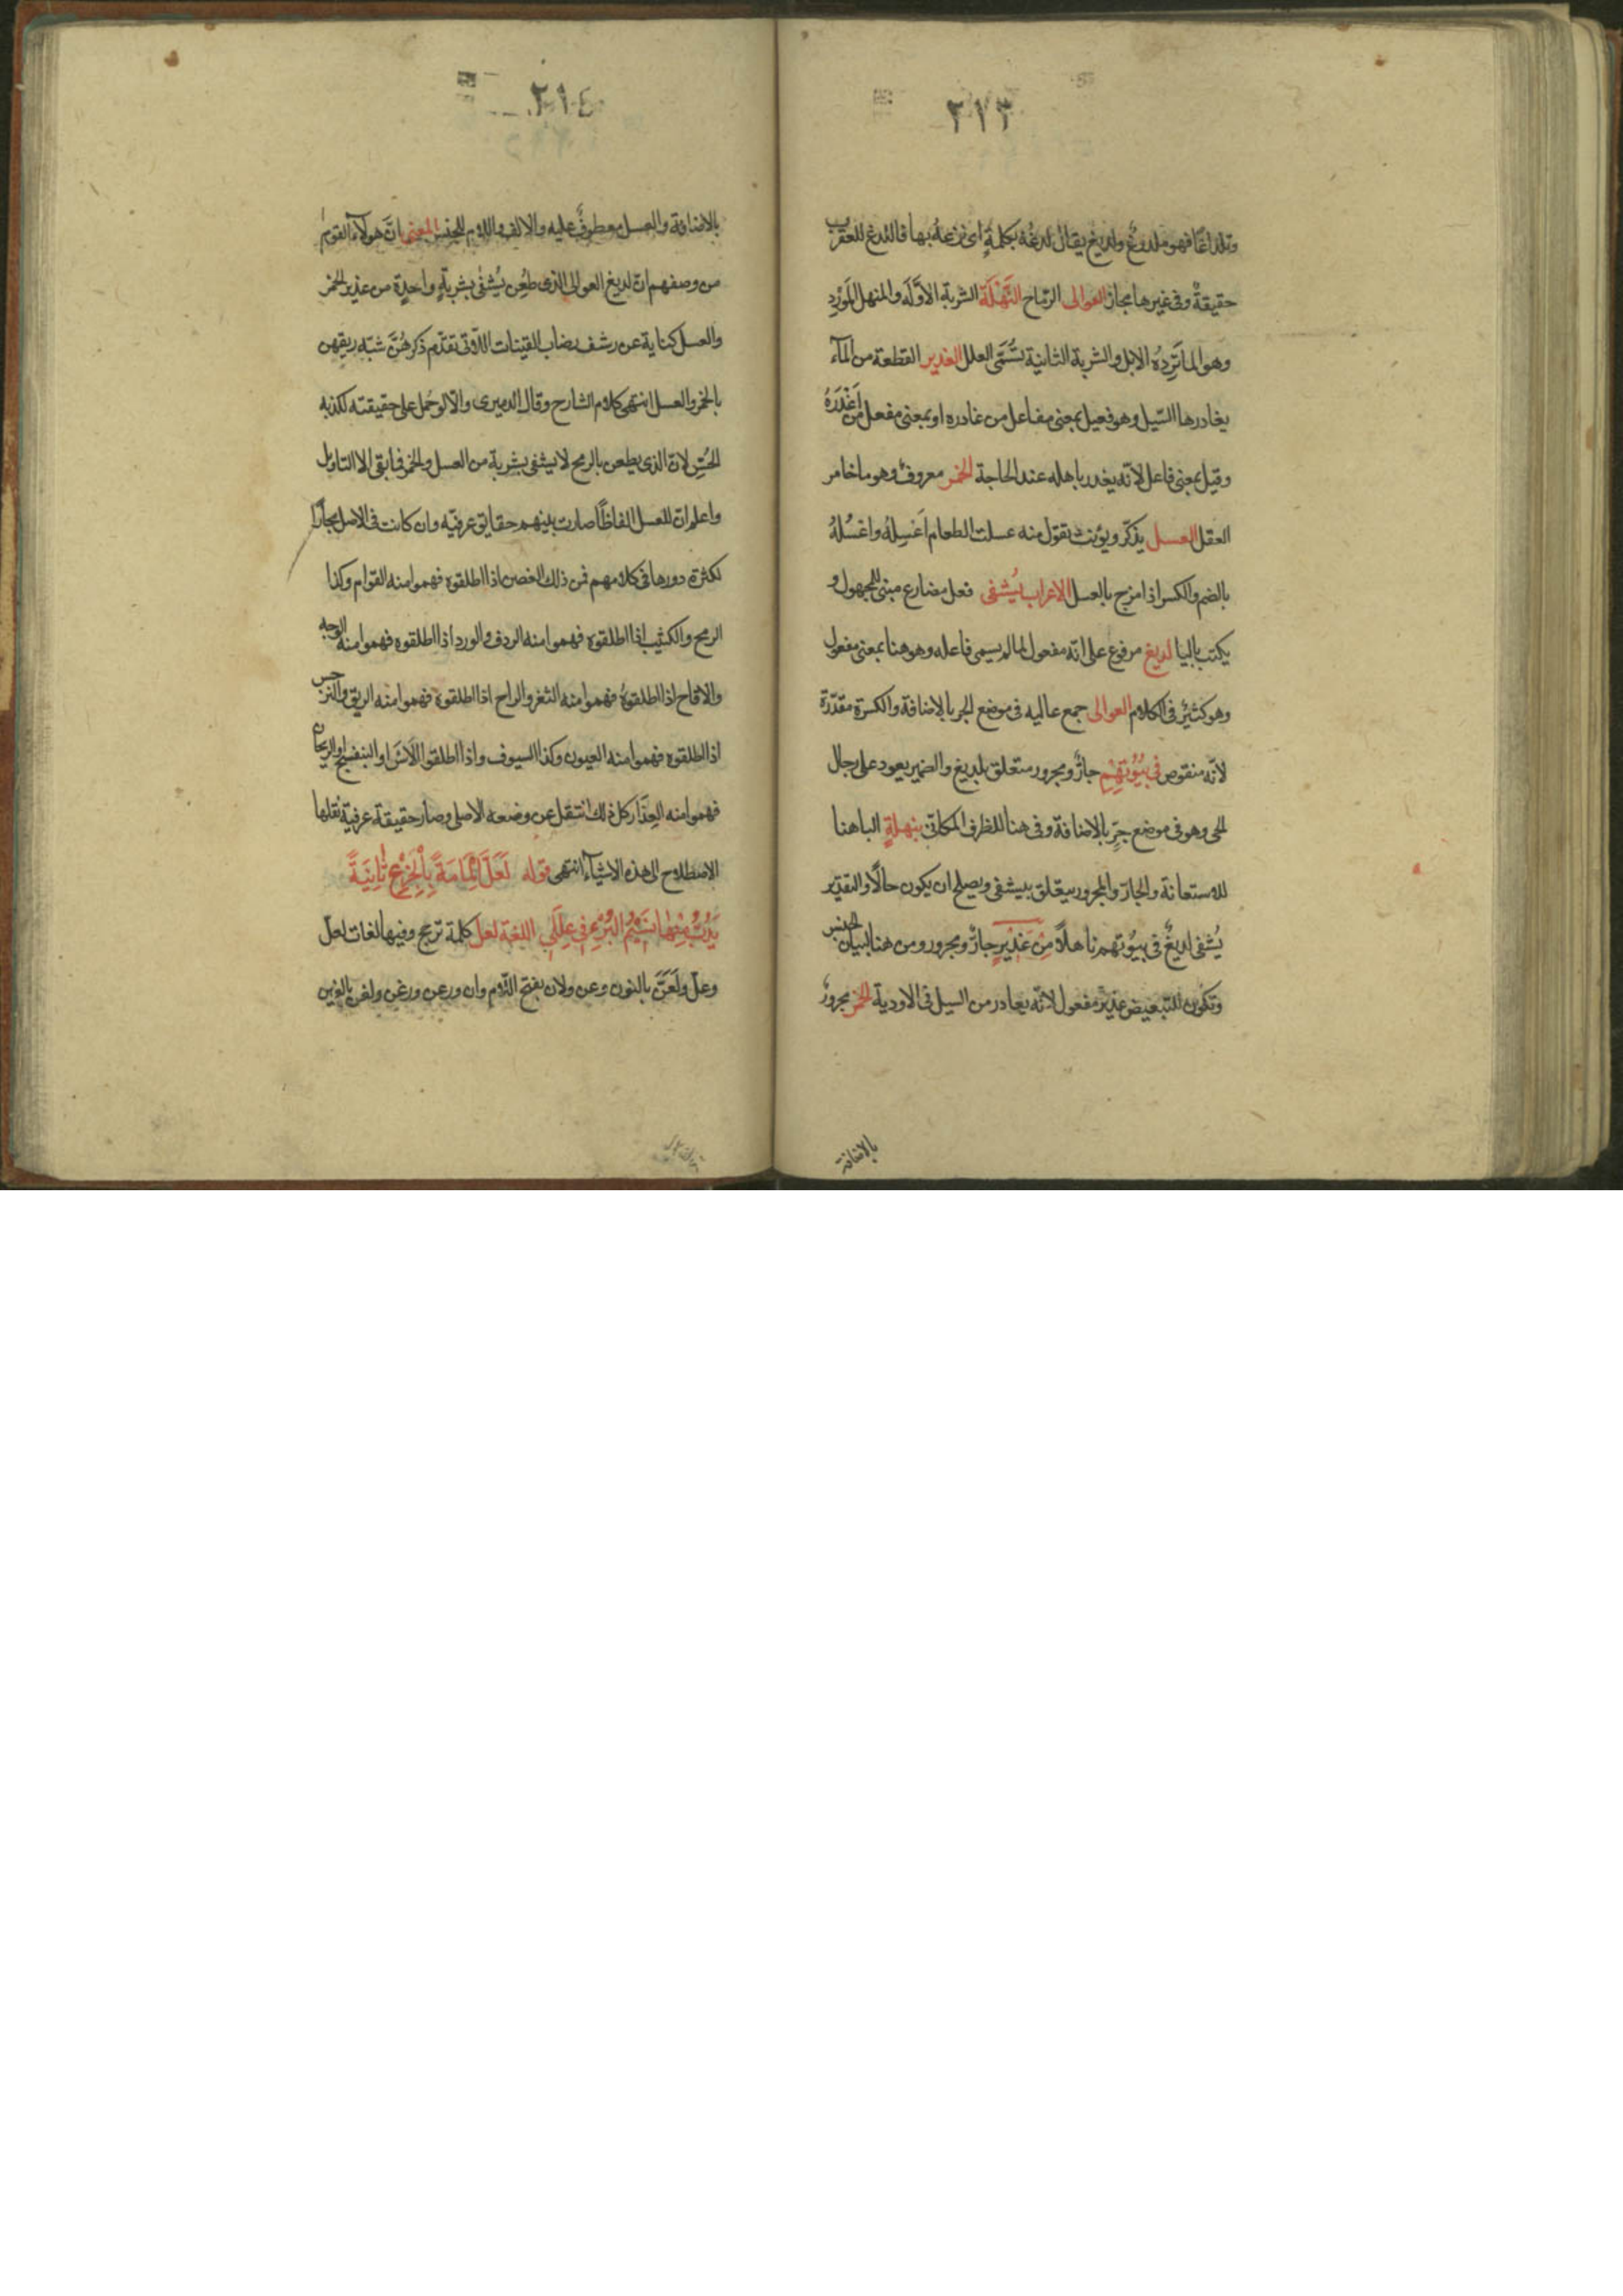 ٢١٣
وتلداغا فهو ملدوغ ولديغ يقال لدغه بكلمة اى نزعه بها فاللدغ للعقرب
حقيقةٌ وفى غيرها مجاز العوالى الرماح النَّهْلَة الشربة الاوّله والمنهل المَوْرِد
وهو الما تَرِدُه الابل والشربة الثانية تُسَمَّى العلل الغدير القطعة من المآء
يغادرها السّيل وهو فعيل بمعنى مفاعل من غادره او بمعنى مفعل من اَغْدَرَهُ
وقيل بمعنى فاعل لانّه يغدر باهله عند الحاجة الخمر معروف وهو ما خامر
العقل العسل يذكّر ويؤنث تقول منه عسلت الطعام اَعْسِلُهُ واعْسُلُهُ
بالضم والكسر اذا مزج بالعسل الاعراب يُشفى فعل مضارع مبنى للمجهول و
يكتب باليا لديغ مرفوع على انّه مفعول لما لم يسمى فاعله وهو هنا بمعنى مفعول
وهو كثيرٌ فى الكلام العوالى جمع عاليه فى موضع الجر بالاضافة والكسرة مقدّرة
لانّه منقوص فى بُيُوْتِهِمِ جارٌ ومجرور متعلق بلديغ والضمير يعود على رجال
الحى وهو فى موضع جرٍّ بالاضافة وفى هنا للظرف المكانى بنهلةٍ البا هنا
للاستعانة والجارّ والمجرور يتعّلق بيشفى ويصلح ان يكون حالًا والتقدير
يُشفى لديغٌ فى بيُوتهم ناهلًا مِنْ غَدِيْرِ جارٌّ ومجرور ومن هنا لبيان الجنس
وتكون للتبعيض غديرٌ مفعول لانّه يغادر من السيل فى الاودية الخمر مجرورٌ
بالاضافة
٢١٤
بالاضافة والعسل معطوفٌ عليه والالف واللام للجنس المعنى انّ هولآء القوم
من وصفهم ان لديغ العوالى الذى طُعِن يُشْفى بشربةٍ واحدِةٍ من غدير الخمر
والعسل كناية عن رشف رضاب القينات اللّاتى تقدّم ذكرهُنَّ شبّه ريقهن
بالخمر والعسل انتهى كلام الشارح وقال الدميرى والّا لو حُمل على حقيقته لكذبه
الحُسِّ لانّ الذى يطعن بالرمح لا يشفى بشربة من العسل والخمر فما بقى الا التاويل
واعلم انّ للعسل الفاظًا صارت بينهم حقايق عرفيّه وان كانت فى الاصل مجازًا
لكثرة دورها فى كلامهم فمن ذلك الغصن اذا اطلقوه فهموا منه القوام وكذا
الرمح والكثيب اذا اطلقوه فهموا منه الردف والورد اذا اطلقوه فهموا منه الوجه
والاقاح اذا اطلقوهُ فهموا منه الثغر والراح اذا اطلقوه فهموا منه الريق والنرجس
اذا اطلقوه فهموا منه العيون وكذا السيوف واذا اطلقوا الآس او البنفسج او الريحان
فهموا منه العِذَار كل ذلك انتقل عن وضعه الاصلى وصار حقيقة عرفيّة نقلها
الاصطلاح الى هذه الاشيآء انتهى قوله لَعَلَّ اِلْمَامَةً بِالْجِزْعِ ثَانِيَةً
يَدُبُّ مِنْهَا نَسِيْمُ البُرْءِ فِى عِلَلِى اللغة لعل كلمة ترجٍ وفيها لغات لعل
وعلّ ولَعَنَّ بالنون وعن ولان بفتح اللّام وان ورعن ورغن ولغن بالغين